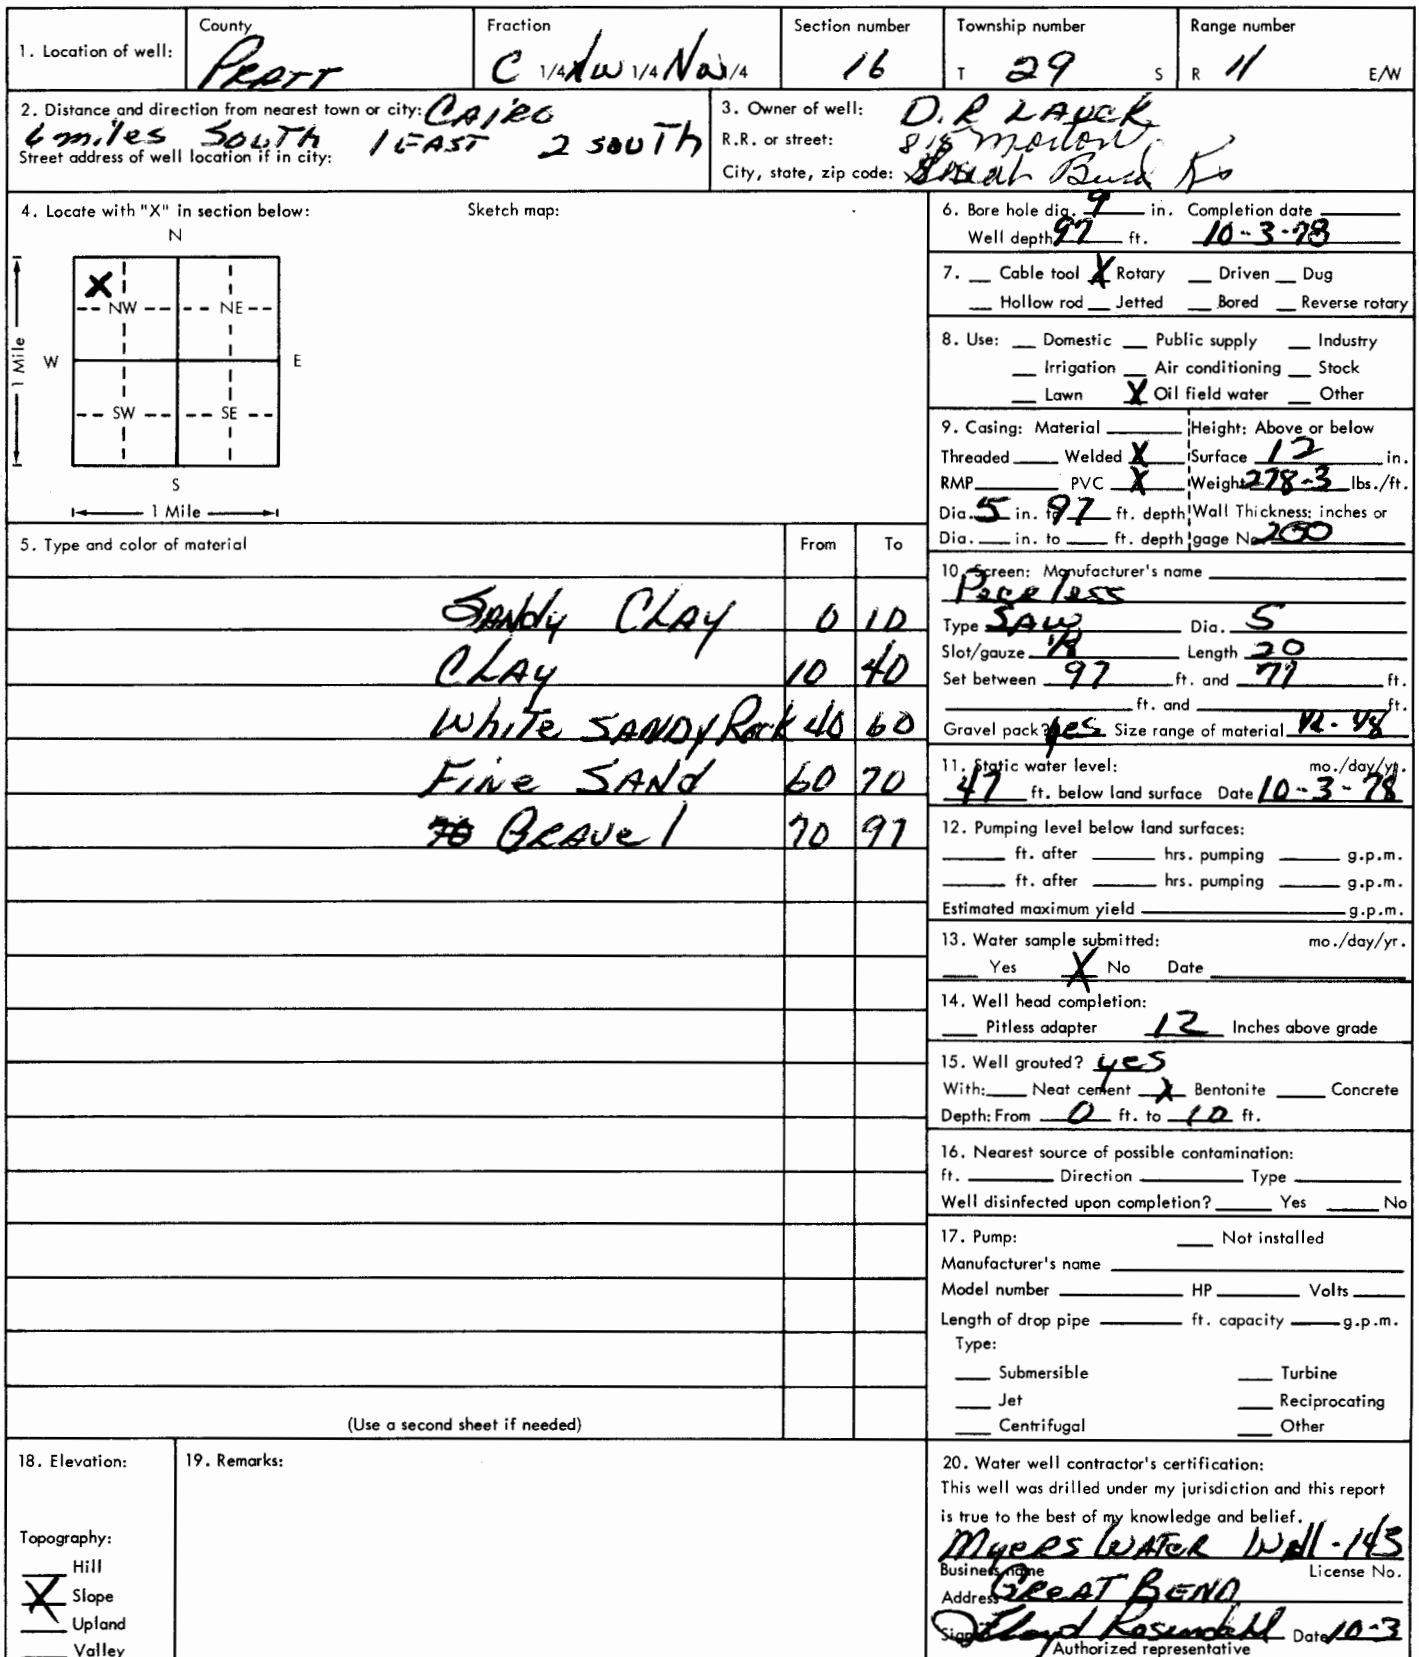 1. Location of well: County PRATT Fraction C 1/4 NW 1/4 NW 1/4 Section number 16 Township number T 29 S Range number R 11 E/W
2. Distance and direction from nearest town or city: CAIRO
6 miles SOUTH 1 EAST 2 SOUTH
Street address of well location if in city:
3. Owner of well: D.R LAUCK
R.R. or street: 815 Morton
City, state, zip code: Bend Ks
4. Locate with "X" in section below: Sketch map:
N
X
NW NE
W E
1 Mile
SW SE
S
1 Mile
5. Type and color of material From To
SANDY CLAY 0 10
CLAY 10 40
White SANDY Rock 40 60
Fine SAND 60 70
70 GRAVEl 70 97
(Use a second sheet if needed)
6. Bore hole dia. 9 in. Completion date
Well depth 97 ft. 10-3-78
7. Cable tool X Rotary Driven Dug
Hollow rod Jetted Bored Reverse rotary
8. Use: Domestic Public supply Industry
Irrigation Air conditioning Stock
Lawn X Oil field water Other
9. Casing: Material Height: Above or below
Threaded Welded X Surface 12 in.
RMP PVC X Weight 278-3 lbs./ft.
Dia. 5 in. to 97 ft. depth Wall Thickness: inches or
Dia. in. to ft. depth gage No. 200
10. Screen: Manufacturer's name
Peerless
Type SAW Dia. 5
Slot/gauze 1/8 Length 20
Set between 97 ft. and 77 ft.
ft. and ft.
Gravel pack? yes Size range of material 1/2 - 1/8
11. Static water level: mo./day/yr.
47 ft. below land surface Date 10-3-78
12. Pumping level below land surfaces:
ft. after hrs. pumping g.p.m.
ft. after hrs. pumping g.p.m.
Estimated maximum yield g.p.m.
13. Water sample submitted: mo./day/yr.
Yes X No Date
14. Well head completion:
Pitless adapter 12 Inches above grade
15. Well grouted? yes
With: Neat cement X Bentonite Concrete
Depth: From 0 ft. to 10 ft.
16. Nearest source of possible contamination:
ft. Direction Type
Well disinfected upon completion? Yes No
17. Pump: Not installed
Manufacturer's name
Model number HP Volts
Length of drop pipe ft. capacity g.p.m.
Type:
Submersible Turbine
Jet Reciprocating
Centrifugal Other
18. Elevation:
Topography:
Hill
X Slope
Upland
Valley
19. Remarks:
20. Water well contractor's certification:
This well was drilled under my jurisdiction and this report
is true to the best of my knowledge and belief.
Myers WATER Well - 143
Business name License No.
Address GREAT BEND
Signed Floyd Rosendahl Date 10-3
Authorized representative